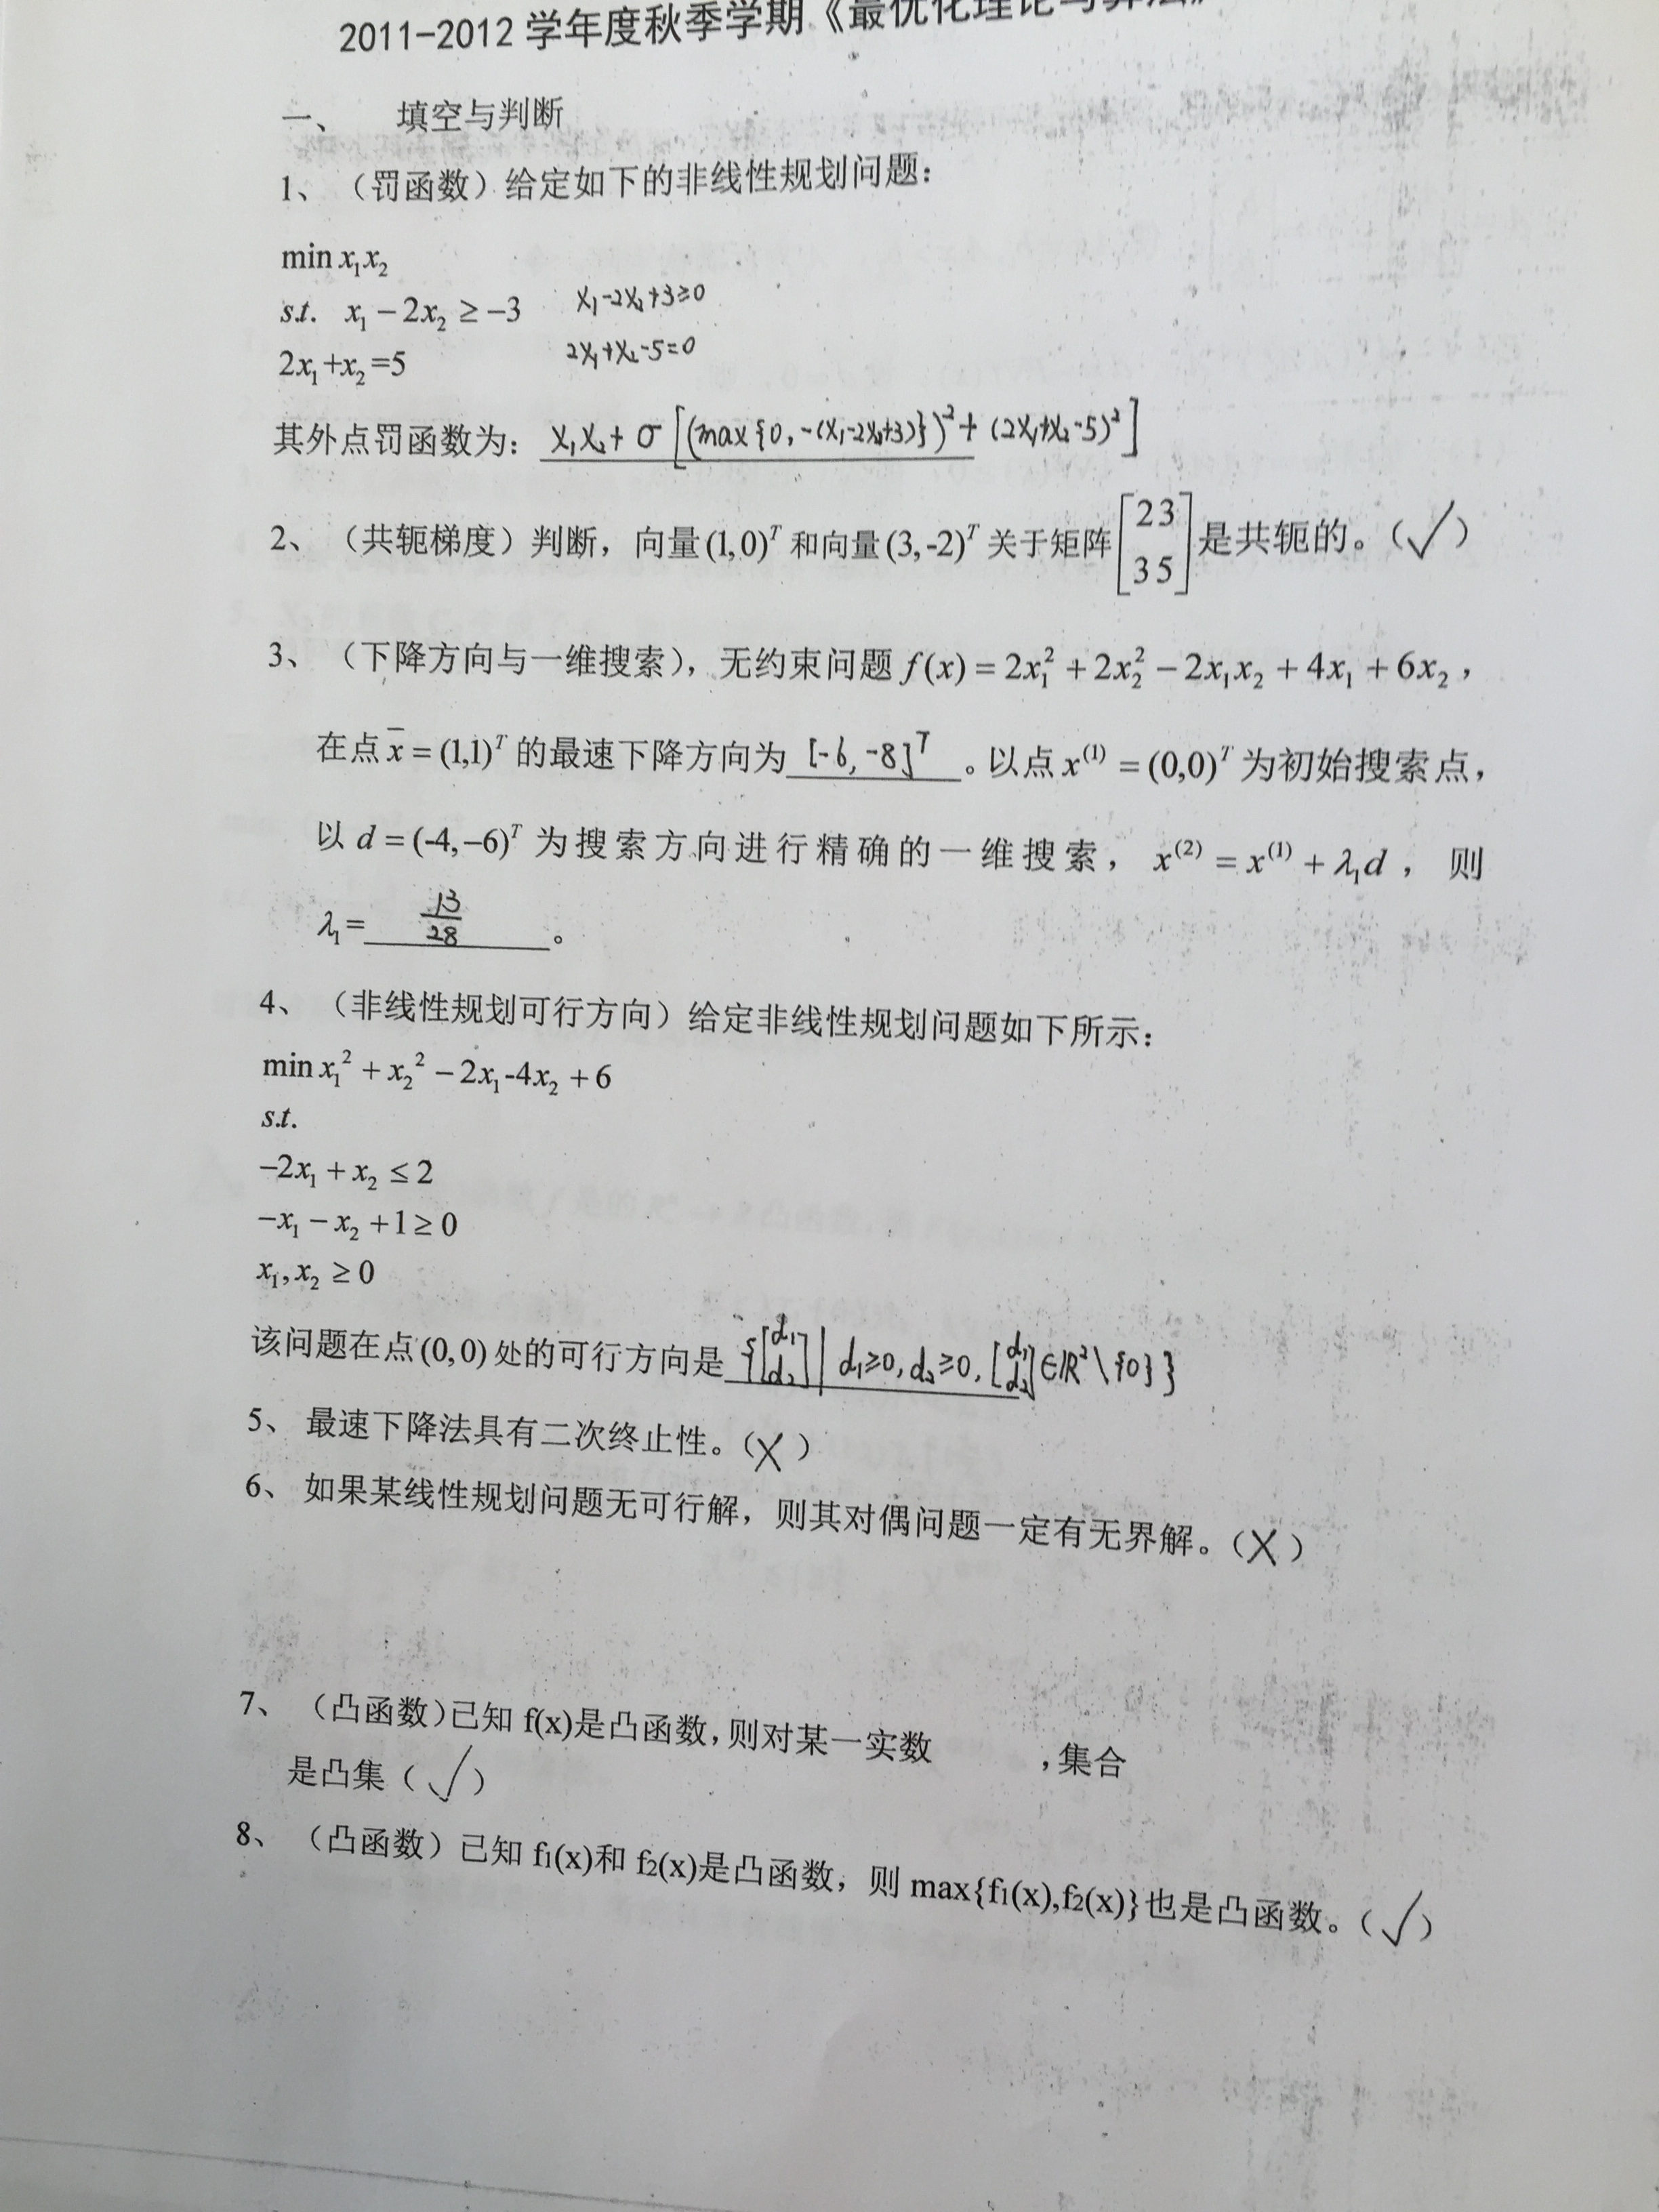 2011-2012 学年度秋季学期《最优化理论与算法》
一、 填空与判断
1、（罚函数）给定如下的非线性规划问题：
min x₁x₂
s.t. x₁ − 2x₂ ≥ −3 x₁-2x₂+3≥0
2x₁+x₂=5 2x₁+x₂-5=0
其外点罚函数为： x₁x₂+ σ[(max{0,-(x₁-2x₂+3)})²+ (2x₁+x₂-5)²]
2、（共轭梯度）判断，向量(1,0)ᵀ 和向量(3,-2)ᵀ 关于矩阵[23 35]是共轭的。（√）
3、（下降方向与一维搜索），无约束问题 f(x) = 2x₁² + 2x₂² − 2x₁x₂ + 4x₁ + 6x₂，
在点 x̄ = (1,1)ᵀ 的最速下降方向为 [-6, -8]ᵀ 。以点 x⁽¹⁾ = (0,0)ᵀ 为初始搜索点，
以 d = (-4,−6)ᵀ 为搜索方向进行精确的一维搜索， x⁽²⁾ = x⁽¹⁾ + λ₁d ， 则
λ₁= 13/28 。
4、（非线性规划可行方向）给定非线性规划问题如下所示：
min x₁² + x₂² − 2x₁-4x₂ + 6
s.t.
−2x₁ + x₂ ≤ 2
−x₁ − x₂ +1 ≥ 0
x₁, x₂ ≥ 0
该问题在点(0,0)处的可行方向是 {[d₁ d₂] | d₁≥0, d₂≥0, [d₁ d₂]∈ℝ²\{0}}
5、最速下降法具有二次终止性。（X）
6、如果某线性规划问题无可行解，则其对偶问题一定有无界解。（X）
7、（凸函数)已知 f(x)是凸函数,则对某一实数 ,集合
是凸集（√）
8、（凸函数）已知 f₁(x)和 f₂(x)是凸函数，则 max{f₁(x),f₂(x)}也是凸函数。（√）